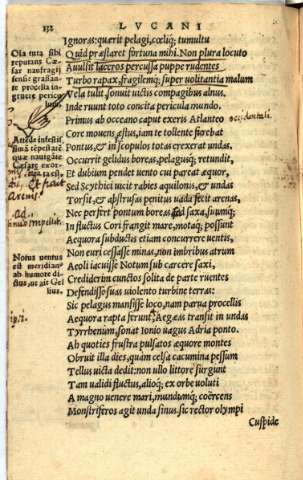 132 LVCANI
Ignoras: quærit pelagi, cœliq; tumultu
Quid præstaret fortuna mihi. Non plura locuto
Avulsit laceros percussa puppe rudentes
Turbo rapax, fragilemq; super volitantia malum
Vela tulit, sonuit victis compagibus alnus,
Inde ruunt toto concita pericula mundo.
Primus ab oceano caput exeris Atlanteo
Core movens æstus, iam te tollente furebat
Pontus, & in scopulos totas erexerat undas.
Occurrit gelidus boreas, pelagusq; retundit,
Et dubium pendet uento cui pareat æquor,
Sed Scythici uicit rabies aquilonis, & undas
Torsit, & abstrusas penitus uada fecit arenas,
Nec perfert pontum boreas ad saxa, suumq;
In fluctus Cori frangit mare, motaq; possunt
Aequora subductis etiam concurrere uentis,
Non euri cessasse minas, non imbribus atrum
Aeoli iacuisse Notum sub carcere saxi,
Crediderim cunctos solita de parte ruentes
Defendisse suas uiolento turbine terras:
Sic pelagus mansisse loco, nam parua procellis
Aequora rapta ferunt: Aegæas transit in undas
Tyrrhenum, sonat Ionio uagus Adria ponto.
Ah quoties frustra pulsatos æquore montes
Obruit illa dies, quàm celsa cacumina pessum
Tellus uicta dedit: non ullo littore surgunt
Tam ualidi fluctus, alioq; ex orbe uoluti
A magno uenere mari, mundumq; coërcens
Monstriferos agit unda sinus. sic rector olympi
Cuspide
Oia tuta sibi
reputans Cæ-
sar naufragij
sensit
procella in
gruere pericu
occidentali.
quæ nauigâte
Cæsarem exor-
Notus uentus
est meridian'
ab humore di-
ctus, ut ait Gel
lius.